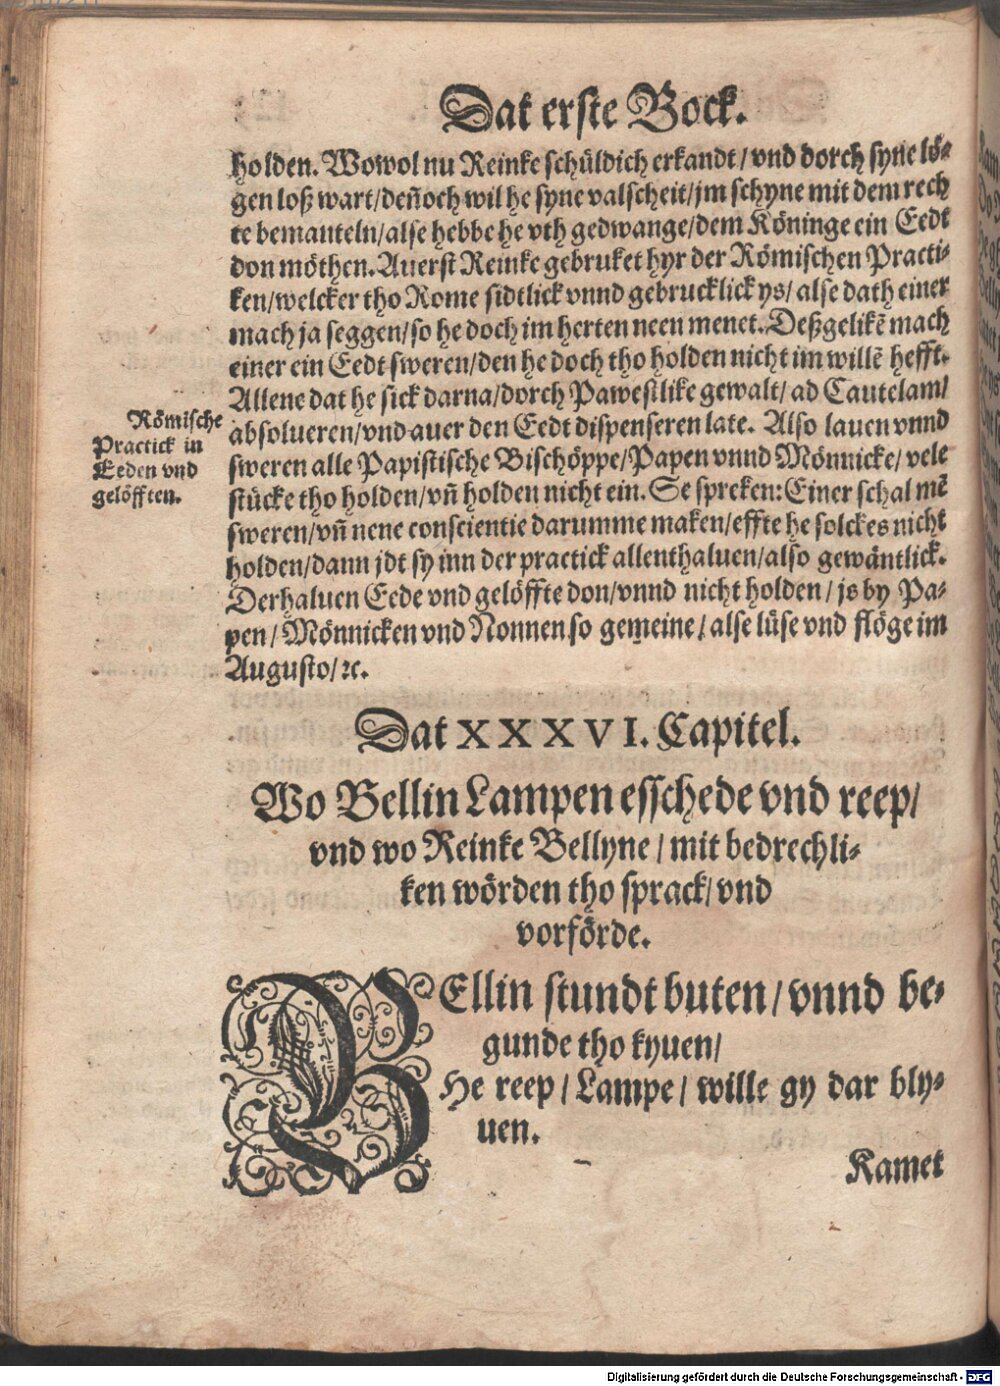 Dat erste Bock.
holden. Wowol nu Reinke schüldich erkandt/ vnd dorch syne lö-
gen loß wart/ deñoch wil he syne valscheit/ jm schyne mit dem rech
te bemanteln/ alse hebbe he vth gedwange/ dem Köninge ein Eedt
don möthen. Auerst Reinke gebruket hyr der Römischen Practi-
ken/ welcker tho Rome sidtlick vnnd gebrucklick ys/ alse dath einer
mach ja seggen/ so he doch im herten neen menet. Deßgelikē mach
einer ein Eedt sweren/ den he doch tho holden nicht im willē hefft.
Allene dat he sick darna/ dorch Pawestlike gewalt/ ad Cautelam/
absolueren/ vnd auer den Eedt dispenseren late. Also lauen vnnd
sweren alle Papistische Bischöppe/ Papen vnnd Mönnicke/ vele
stücke tho holden/ vñ holden nicht ein. Se spreken: Einer schal mē
sweren/ vñ nene conscientie darumme maken/ effte he solckes nicht
holden/ dann jdt sy inn der practick allenthaluen/ also gewäntlick.
Derhaluen Eede vnd gelöffte don/ vnnd nicht holden/ js by Pa-
pen/ Mönnicken vnd Nonnen so gemeine/ alse lüse vnd flöge im
Augusto/ ꝛc.
Römische
Practick in
Eeden vnd
gelöfften.
Dat XXXVI. Capitel.
Wo Bellin Lampen esschede vnd reep/
vnd wo Reinke Bellyne/ mit bedrechli-
ken wörden tho sprack/ vnd
vorförde.
BEllin stundt buten/ vnnd be-
gunde tho kyuen/
He reep/ Lampe/ wille gy dar bly-
uen.
Kamet
Digitalisierung gefördert durch die Deutsche Forschungsgemeinschaft - DFG